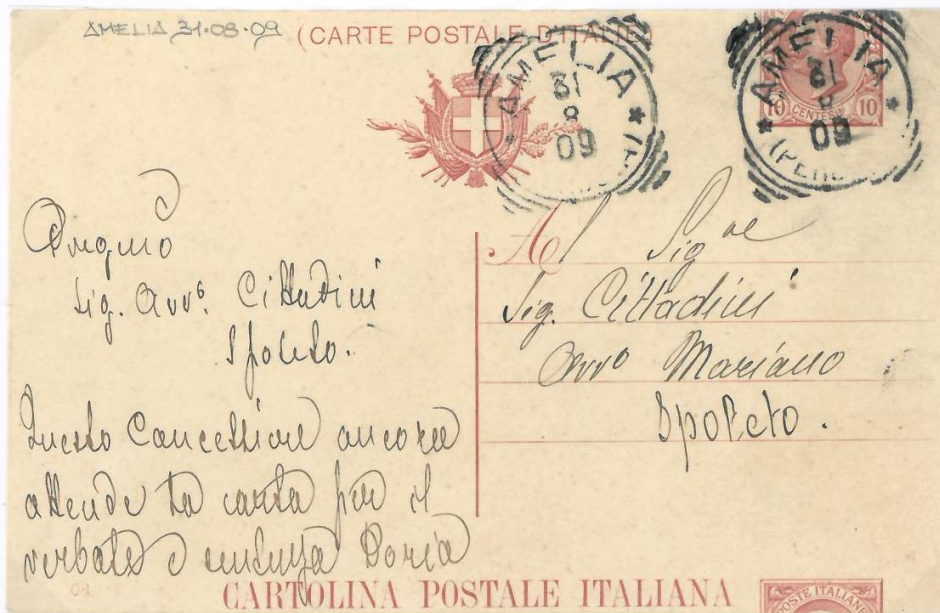 AMELIA 31-08-09 (CARTE POSTALE D'ITALIE)
AMELIA
31
8
09
AMELIA
31
8
09
(PERU
10 CENTESIMI 10
Al Sig re
Sig. Cittadini
Avvo Mariano
Spoleto.
Pregmo
Sig. Avvo. Cittadini
Spoleto.
Questo Cancelliere ancora
attende la carta per il
verbale e sentenza Doria
08
CARTOLINA POSTALE ITALIANA
POSTE ITALIAN